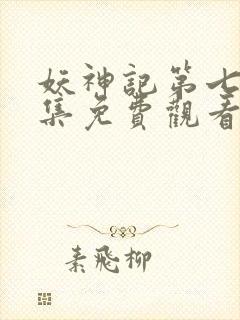 妖神記第七
集免費觀看
素飛柳